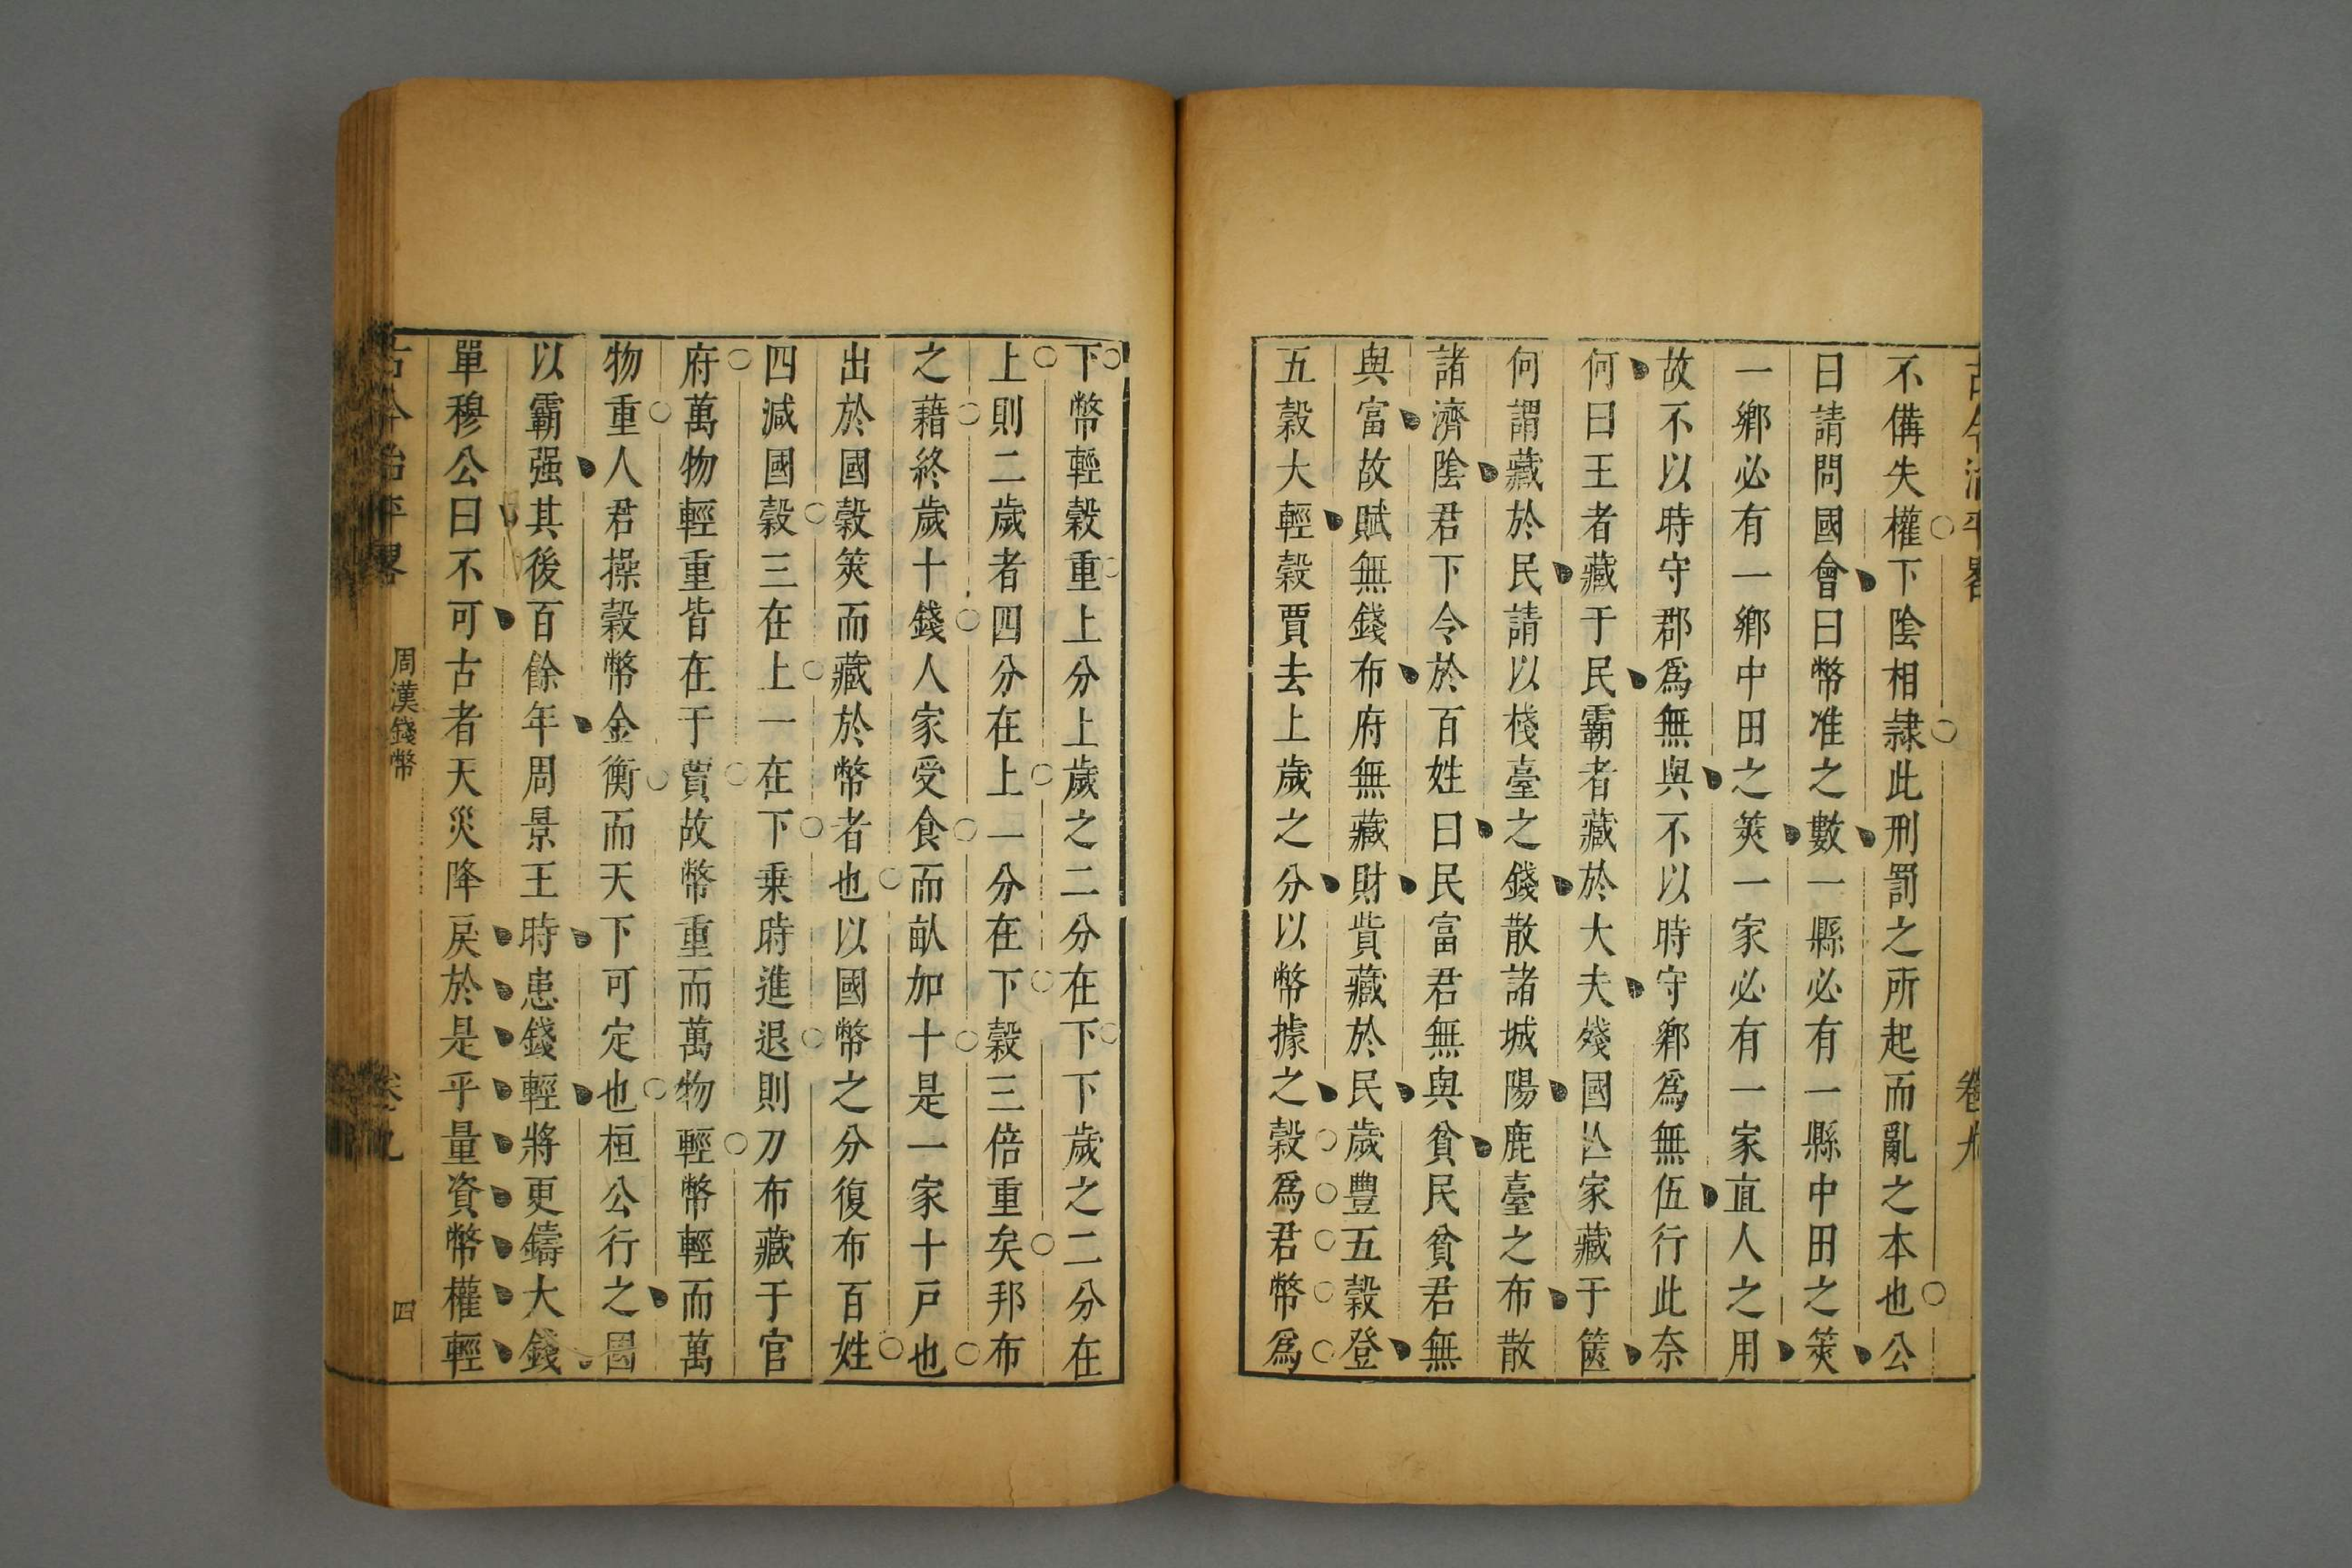 古今治平畧
卷九
不備失權下陰相隷此刑罰之所起而亂之本也公
曰請問國會曰幣准之數一縣必有一縣中田之筴
一鄉必有一鄉中田之筴一家必有一家直人之用
故不以時守郡爲無與不以時守鄉爲無伍行此奈
何曰王者藏于民霸者藏於大夫殘國亾家藏于篋
何謂藏於民請以棧臺之錢散諸城陽鹿臺之布散
諸濟陰君下令於百姓曰民富君無與貧民貧君無
與富故賦無錢布府無藏財貲藏於民歲豐五穀登
五穀大輕穀賈去上歲之分以幣據之穀爲君幣爲
下幣輕穀重上分上歲之二分在下下歲之二分在
上則二歲者四分在上一分在下穀三倍重矣邦布
之藉終歲十錢人家受食而畝加十是一家十戸也
出於國穀筴而藏於幣者也以國幣之分復布百姓
四減國穀三在上一在下乗時進退則刀布藏于官
府萬物輕重皆在于賈故幣重而萬物輕幣輕而萬
物重人君操穀幣金衡而天下可定也桓公行之
以霸强其後百餘年周景王時患錢輕將更鑄大錢
單穆公曰不可古者天災降戾於是乎量資幣權輕
古今治平畧
周漢錢幣
四
卷九